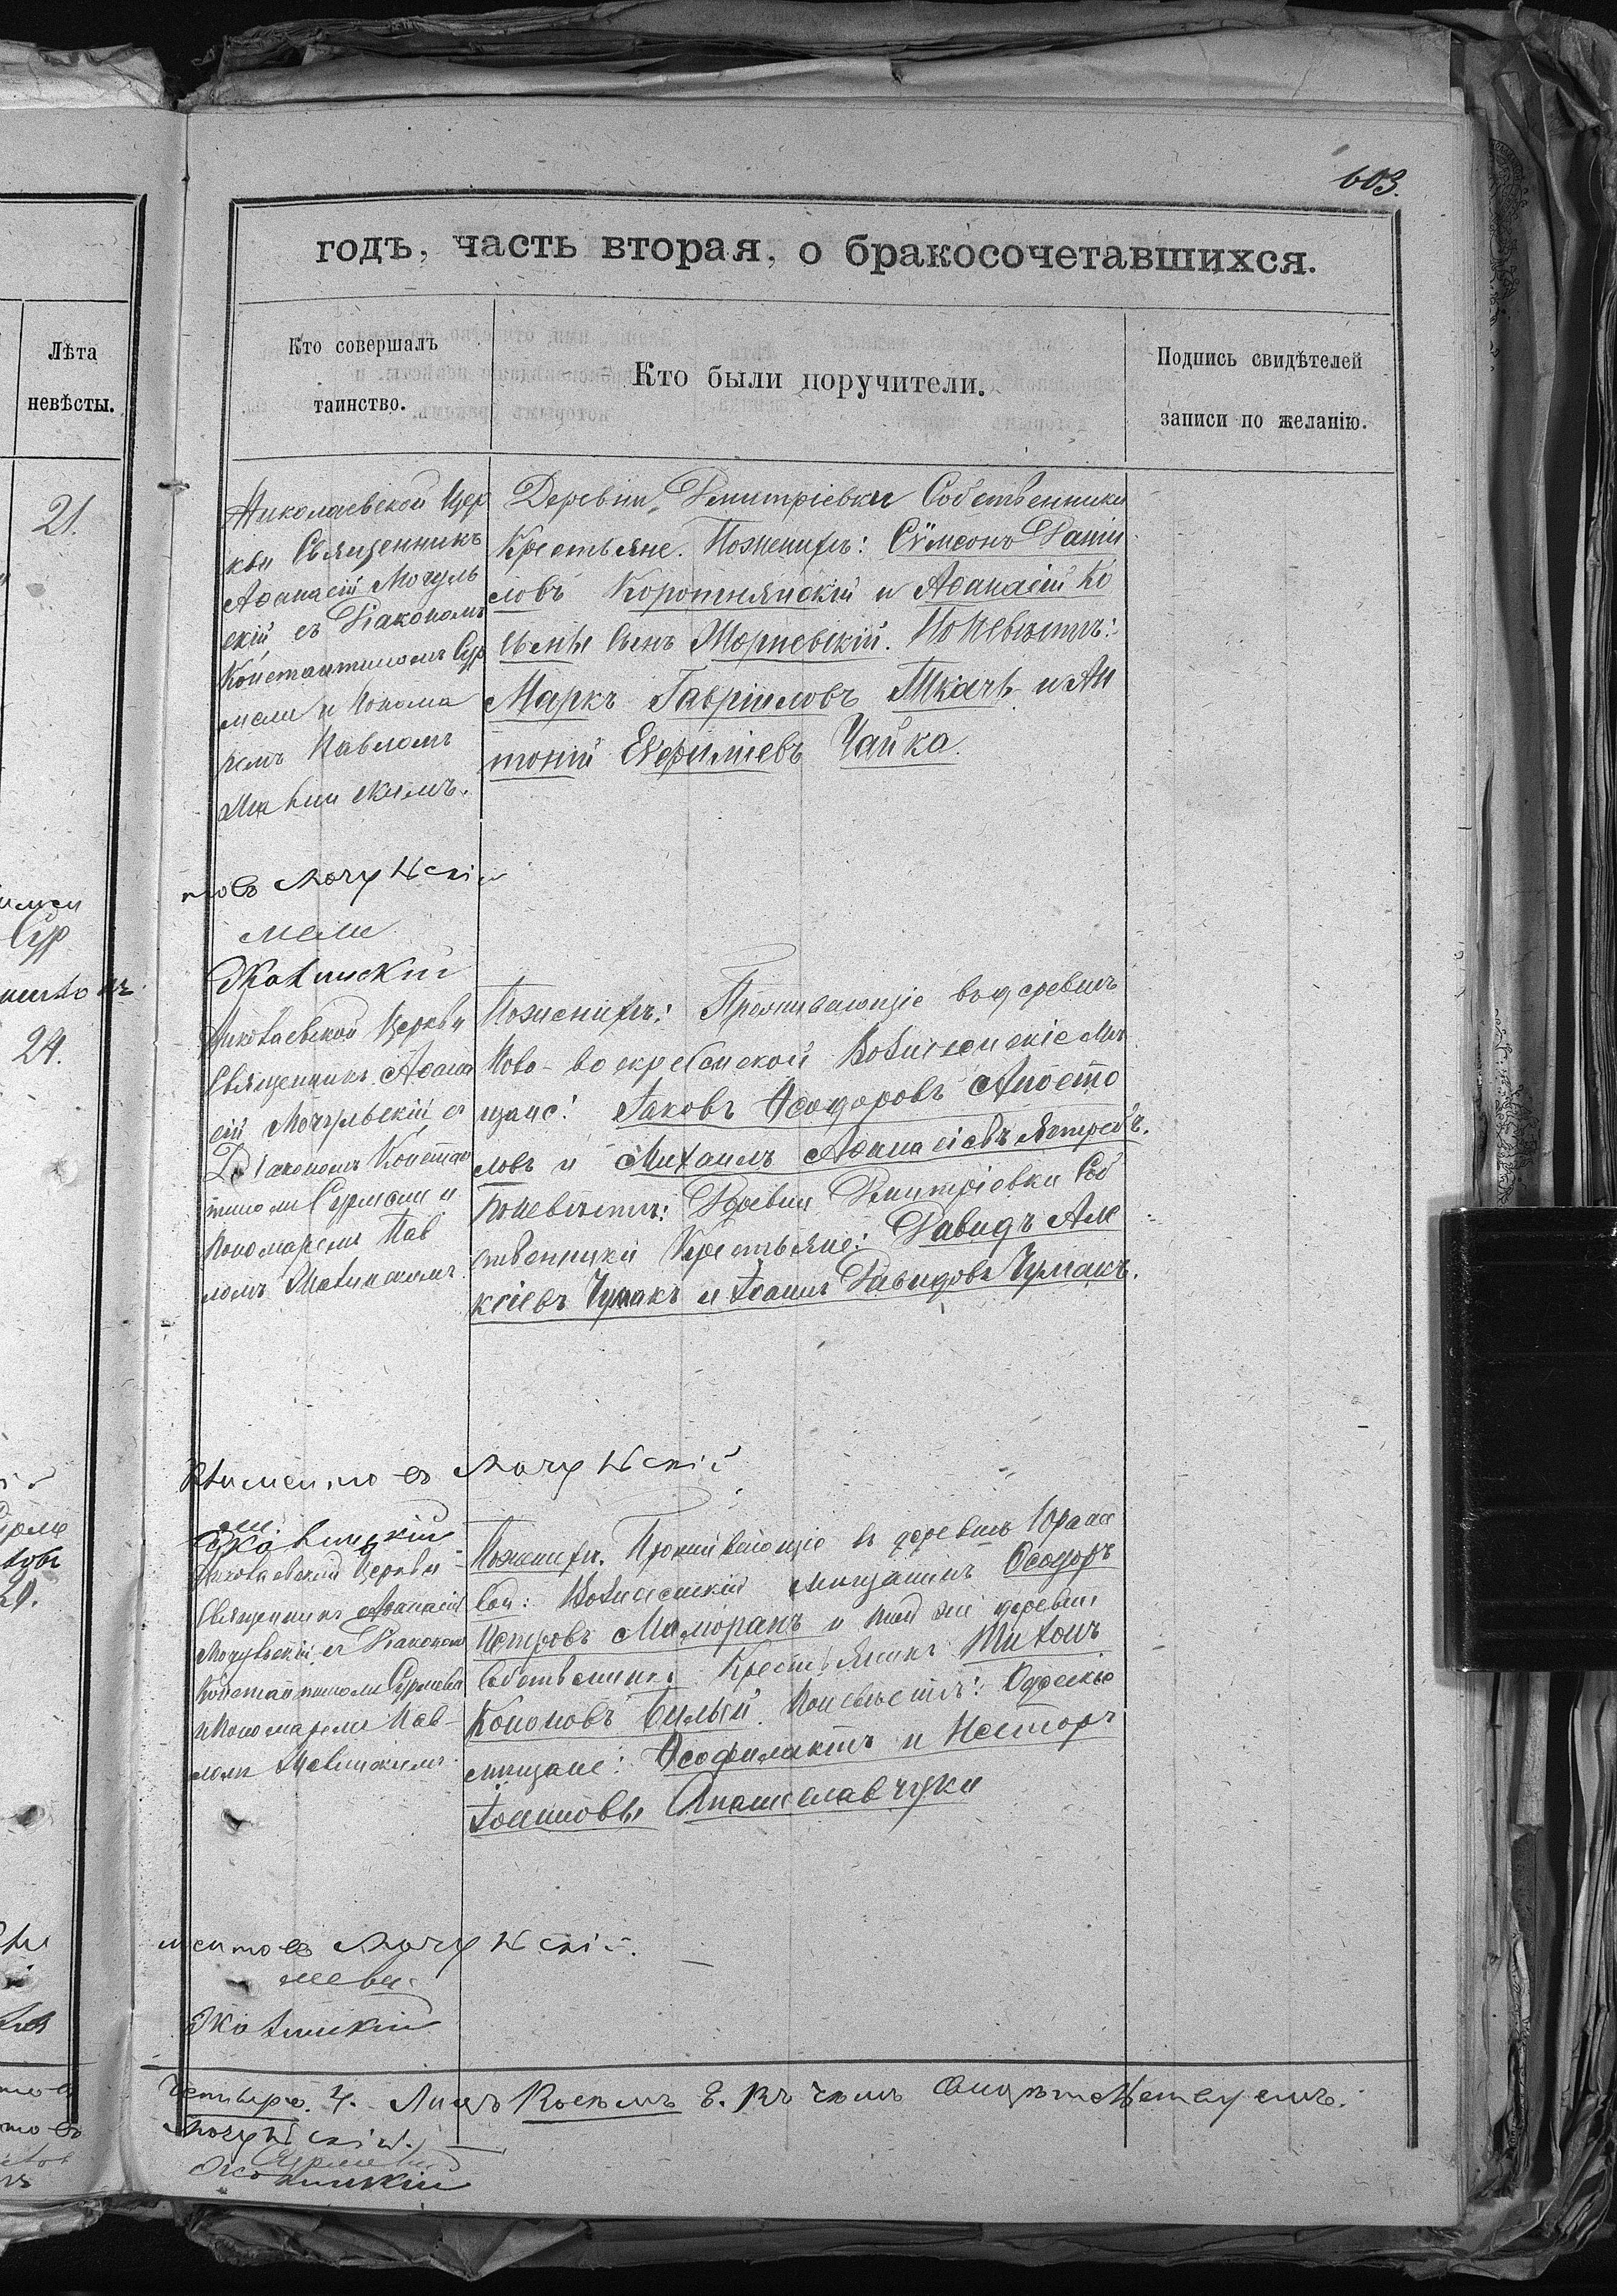 603.
годъ, часть вторая, о бракосочетавшихся.
Лѣта
невѣсты.
Кто совершалъ
таинство.
Кто были поручители.
Подпись свидѣтелей
записи по желанію.
21.
Николаевской Цер
кви Священникъ
Аѳанасій Мочуль
скій съ Діакономъ
Константиномъ Сур
мели и Понома
ремъ Павломъ
Деревни Димитріевки Собственники
Крестьяне. По женихѣ: Сѵмеонъ Даніи
ловъ Коротнянскій и Аѳанасій Ко
сьмы сынъ Жорневскій. По невѣстѣ:
Маркъ Гавріиловъ Ткачъ и Ан
тоній Евфиміевъ Чайка.
Мочульскій
мели
24.
Николаевской Церкви
Священникъ Аѳана
сій Мочульскій съ
Діакономъ Констан
тиномъ Сурмели и
Пономаремъ Пав
ломъ
По женихѣ: Проживающіе въ деревнѣ
Ново-воскресенской Вознесенскіе Мѣ
щане: Іаковъ Ѳеодоровъ Апосто
ловъ и Михаилъ Аѳанасіевъ Ястребъ.
По невѣстѣ: Деревни Димитріовки Соб
ственники Крестьяне: Давидъ Але
ксіевъ Чумакъ и Іоаннъ Давидовъ Чумакъ.
Мочульскій
Николаевской Церкви
Священникъ Аѳанасій
Мочульскій съ Діакономъ
Константиномъ Сурмели
и Пономаремъ Пав-
ломъ
По женихѣ. Проживающіе въ деревнѣ
Вознесенскій мѣщанинъ Ѳеодоръ
Петровъ и той же деревни
Собственникъ Крестьянинъ Тихонъ
Кононовъ Билый. По невѣстѣ: Одесскіе
мѣщане: Ѳеофилактъ и Несторъ
Іоанновы
Мочульскій.
Четыре. 4. Лицъ Восемь 8. Въ чемъ Свидѣтельствуемъ:
Мочульскій.